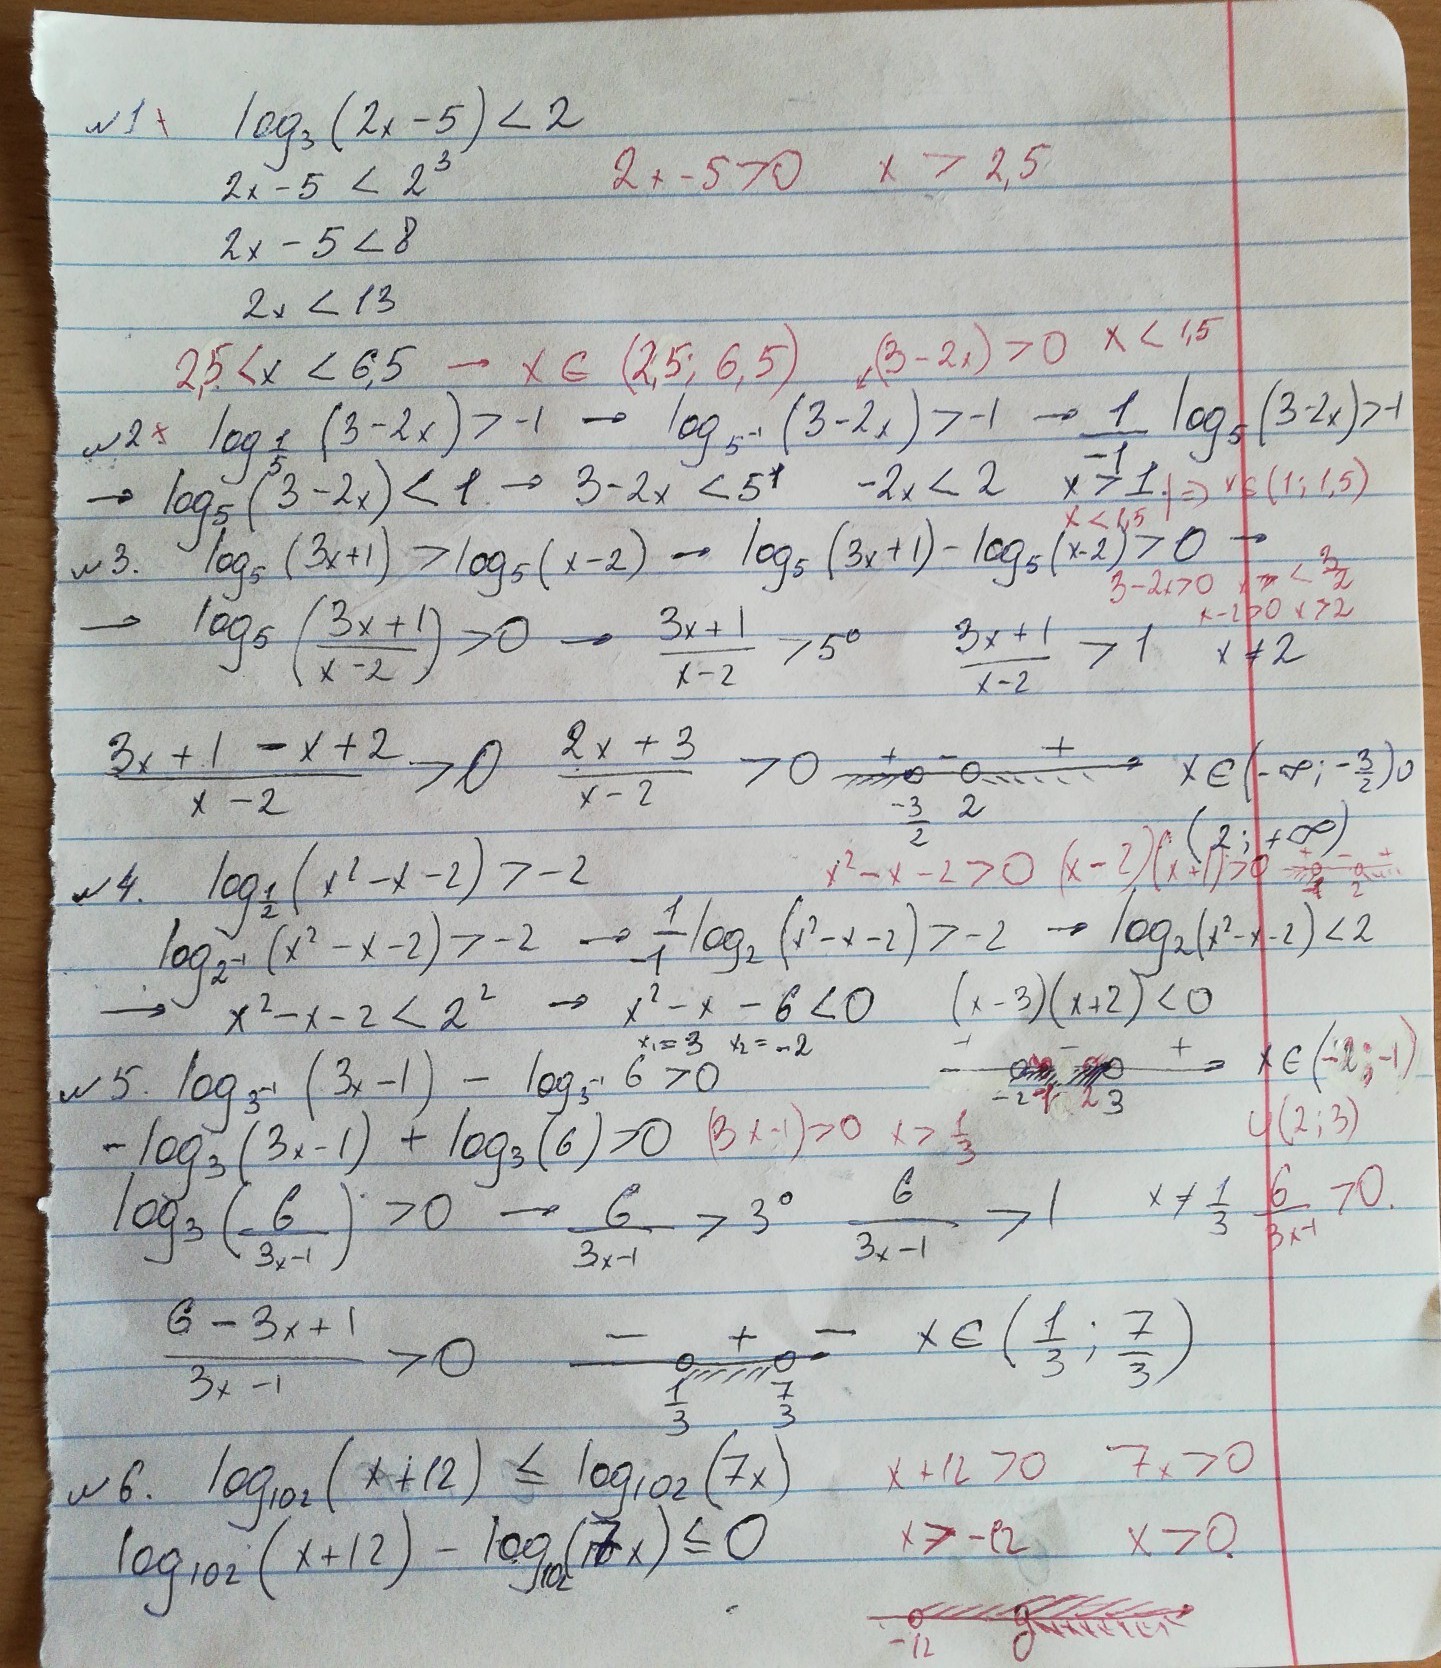 №1 + log₃(2x-5) < 2
2x-5 < 2³ 2x-5>0 x > 2,5
2x-5 < 8
2x < 13
2,5 < x < 6,5 → x ∈ (2,5; 6,5) (3-2x)>0 x < 1,5
№2 × log_{1/5}(3-2x) > -1 → log_{5⁻¹}(3-2x) > -1 → 1/-1 log₅(3-2x) > -1
→ log₅(3-2x) < 1 → 3-2x < 5¹ -2x < 2 x > 1 | ⇒ x ∈ (1; 1,5)
x < 1,5
№3. log₅(3x+1) > log₅(x-2) → log₅(3x+1) - log₅(x-2) > 0 →
3-2x>0 x < 3/2
x-2>0 x>2
→ log₅((3x+1)/(x-2)) > 0 → (3x+1)/(x-2) > 5⁰ (3x+1)/(x-2) > 1 x ≠ 2
(3x+1-x+2)/(x-2) > 0 (2x+3)/(x-2) > 0 + - + -3/2 2 x ∈ (-∞; -3/2) ∪
(2; +∞)
№4. log_{1/2}(x²-x-2) > -2 x²-x-2>0 (x-2)(x+1)>0 + - + -1 2
log_{2⁻¹}(x²-x-2) > -2 → 1/-1 log₂(x²-x-2) > -2 → log₂(x²-x-2) < 2
→ x²-x-2 < 2² → x²-x-6 < 0 (x-3)(x+2) < 0
x₁=3 x₂=-2 + - + -2 -1 2 3 x ∈ (-2; -1)
∪ (2; 3)
№5. log_{3⁻¹}(3x-1) - log_{3⁻¹} 6 > 0
-log₃(3x-1) + log₃(6) > 0 (3x-1)>0 x > 1/3
log₃(6/(3x-1)) > 0 → 6/(3x-1) > 3⁰ 6/(3x-1) > 1 x ≠ 1/3 6/(3x-1) > 0.
(6-3x+1)/(3x-1) > 0 - + - 1/3 7/3 x ∈ (1/3; 7/3)
№6. log₁₀₂(x+12) ≤ log₁₀₂(7x) x+12>0 7x>0
log₁₀₂(x+12) - log₁₀₂(7x) ≤ 0 x > -12 x > 0.
-12